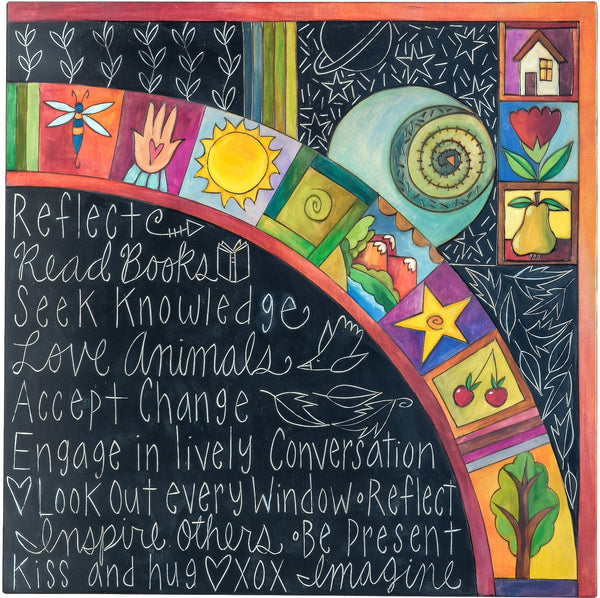 Reflect
Read Books
Seek Knowledge
Love Animals
Accept Change
Engage in lively Conversation
♡Look Out every Window•Reflect
Inspire Others •Be Present
Kiss and hug♡XOX Imagine